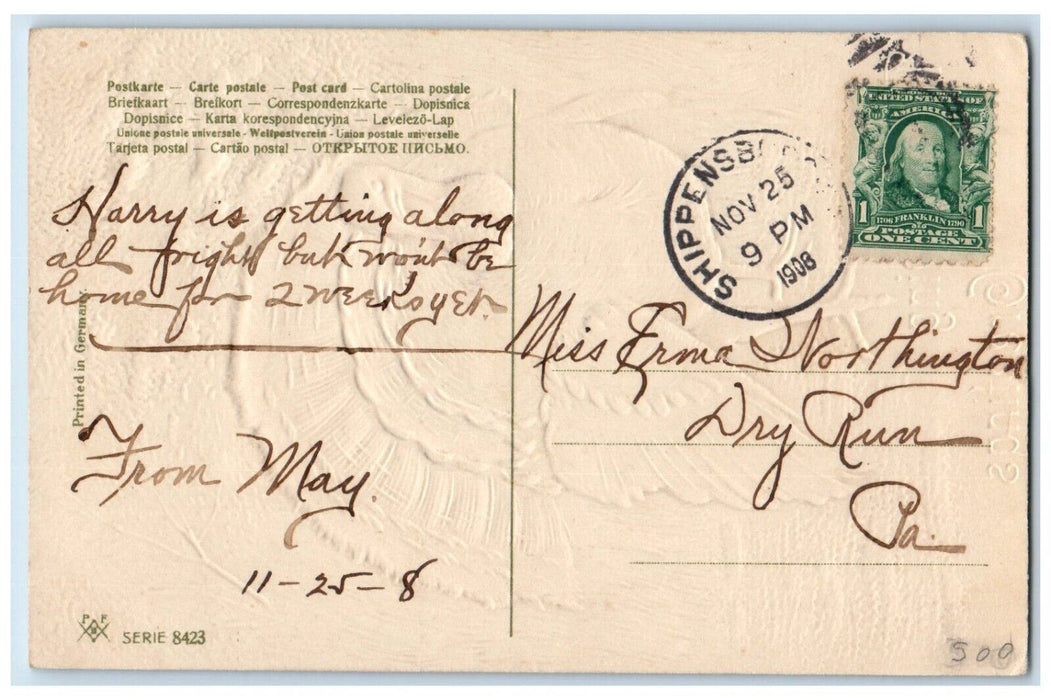 Postkarte — Carte postale — Post card — Cartolina postale
Briefkaart — Brefkort — Correspondenzkarte — Dopisnica
Dopisnice — Karta korespondencyjna — Levelező-Lap
Unione postale universale - Weltpostverein - Union postale universelle
Tarjeta postal — Cartão postal — ОТКРЫТОЕ ПИСЬМО.
Harry is getting along
all fright but won't be
home for 2 weeks yet.
From May.
11-25-8
Printed in Germany.
P F B
SERIE 8423
SHIPPENSB
NOV 25
9 PM
1908
UNITED STATES OF
AMERICA
1 1706 FRANKLIN 1790 1
POSTAGE
ONE CENT
Miss Erma Northington
Dry Run
Pa.
500